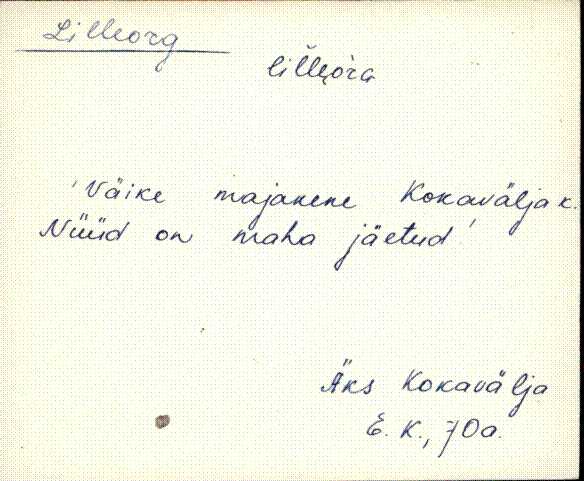 Lilleorg
lil̆l̆e͔òrɢ
'Väike majakene Kokavälja k.
Nüüd on maha jäetud'
Äks Kokavälja
E. K., 70a.